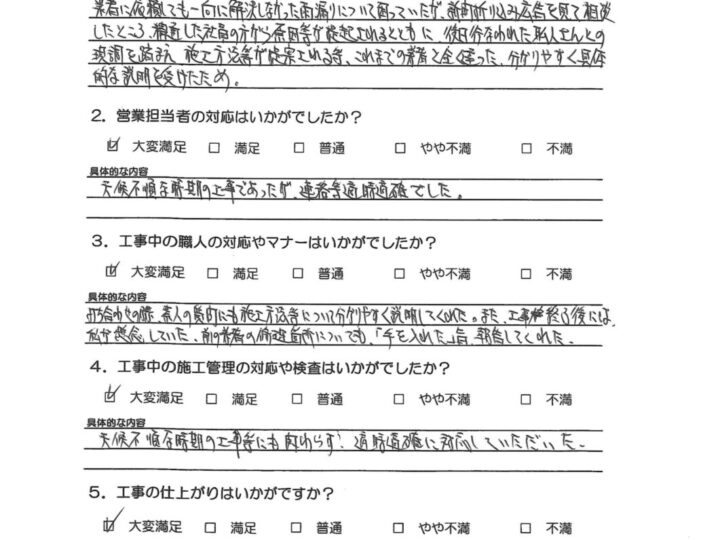 業者に依頼しても一向に解決しなかった雨漏りについて困っていたが、新聞折り込み広告を見て相談
したところ、精通した社員の方から原因等が提起されるとともに、後日行なわれた職人さんとの
現調を踏まえ、施工方法等が提案される等、これまでの業者と全く違った、分かりやすく具体
的な説明を受けたため。
2．営業担当者の対応はいかがでしたか？
☑ 大変満足 □ 満足 □ 普通 □ やや不満 □ 不満
具体的な内容
天候不順な時期の工事であったが、連絡等適時適確でした。
3．工事中の職人の対応やマナーはいかがでしたか？
☑ 大変満足 □ 満足 □ 普通 □ やや不満 □ 不満
具体的な内容
打ち合わせの際、素人の質問にも施工方法等について分かりやすく説明してくれた。また、工事終了後には、
私が懸念していた、前の業者の修理箇所についても、「手を入れた」旨、報告してくれた。
4．工事中の施工管理の対応や検査はいかがでしたか？
☑ 大変満足 □ 満足 □ 普通 □ やや不満 □ 不満
具体的な内容
天候不順な時期の工事等にも関わらず、適時適確に対応していただいた。
5．工事の仕上がりはいかがですか？
☑ 大変満足 □ 満足 □ 普通 □ やや不満 □ 不満